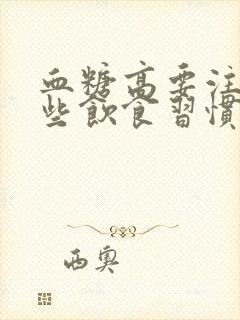 血糖高要注
些飲食習慣
西奧